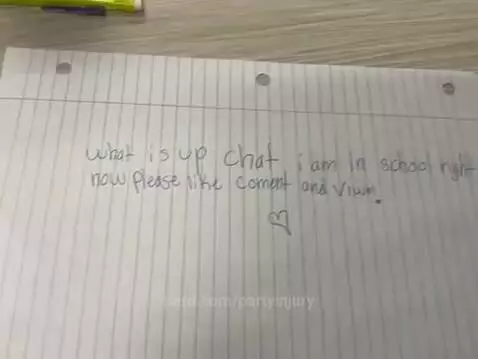 what is up chat i am in school right
now please like coment and vium.
.com/partyinjury